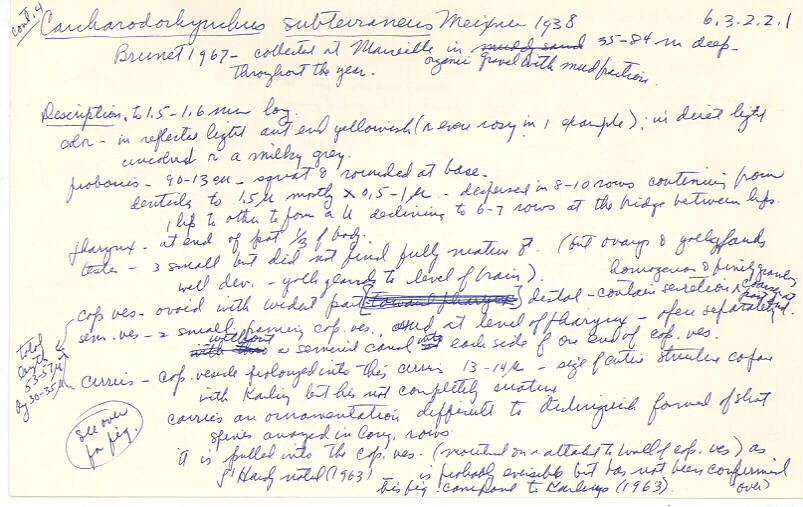 cont. 4
Carcharodorhynchus subterraneus Meixner 1938 6.3.2.2.1
Brunet 1967 - collected at Marseille in muddy sand 35-84 m deep
throughout the year. organic gravel with mud fraction.
Description. to 1.5-1.6 mm long.
color - in reflected light ant end yellowish (or even rosy in 1 example); in direct light
uncolored or a milky grey.
proboscis - 90-13 - squat & rounded at base.
denticles to 1.5 µ mostly x 0,5-1 µ - dispersed in 8-10 rows continuing from
1 lip to other to form a U declining to 6-7 rows at the ridge between lips.
pharynx - at end of post 1/3 of body.
testes - 3 small but did not find fully mature st. (but ovary & yolk glands
well dev. - yolk glands to level of brain). homogenous & finely granular
cop ves - ovoid with widest part toward pharynx distal - contain secretion & coarse at
often separately
sem. ves - 2 small, framing cop. ves. and at level of pharynx
without a seminal canal into each side of ant end of cop. ves.
total length 53-57 µ by 30-35 µ
cirrus - cop. vesicle prolonged into this cirrus 13-14 µ - size of entire structure
with Karling but his not completely mature
carries an ornamentation difficult to distinguish formed of short
spines arranged in long. rows.
see over for fig
it is pulled into the cop. ves. (mounted on or attached to wall of cop. ves) as
L'Hardy noted (1963) is probably eversible but has not been confirmed
his fig. compare to Karling's (1963). over)